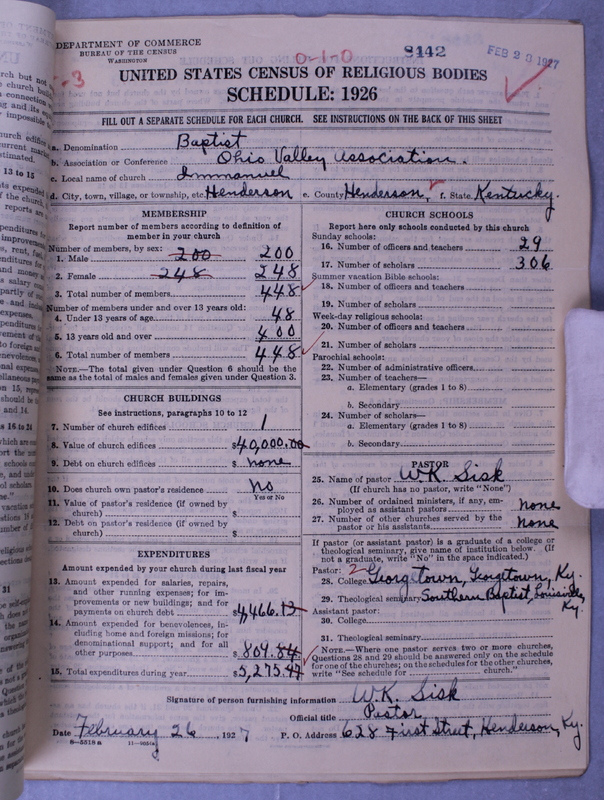 DEPARTMENT OF COMMERCE
BUREAU OF THE CENSUS
WASHINGTON
0-1-0
8442
FEB 28 1927
-3
UNITED STATES CENSUS OF RELIGIOUS BODIES
SCHEDULE: 1926
FILL OUT A SEPARATE SCHEDULE FOR EACH CHURCH. SEE INSTRUCTIONS ON THE BACK OF THIS SHEET
a. Denomination Baptist
b. Association or Conference Ohio Valley Association.
c. Local name of church Immanuel
d. City, town, village, or township, etc. Henderson e. County Henderson, f. State Kentucky.
MEMBERSHIP
Report number of members according to definition of
member in your church
Number of members, by sex:
1. Male 200 200
2. Female 248 248
3. Total number of members 448
Number of members under and over 13 years old:
4. Under 13 years of age 48
5. 13 years old and over 400
6. Total number of members 448
NOTE.—The total given under Question 6 should be the
same as the total of males and females given under Question 3.
CHURCH BUILDINGS
See instructions, paragraphs 10 to 12
7. Number of church edifices 1
8. Value of church edifices $40,000.00
9. Debt on church edifices $ none
10. Does church own pastor's residence No
Yes or No
11. Value of pastor's residence (if owned by
church) $
12. Debt on pastor's residence (if owned by
church) $
EXPENDITURES
Amount expended by your church during last fiscal year
13. Amount expended for salaries, repairs,
and other running expenses; for im-
provements or new buildings; and for
payments on church debt $4,466.13
14. Amount expended for benevolences, in-
cluding home and foreign missions; for
denominational support; and for all
other purposes $809.84
15. Total expenditures during year $5,275.97
CHURCH SCHOOLS
Report here only schools conducted by this church
Sunday schools:
16. Number of officers and teachers 29
17. Number of scholars 306
Summer vacation Bible schools:
18. Number of officers and teachers
19. Number of scholars
Week-day religious schools:
20. Number of officers and teachers
21. Number of scholars
Parochial schools:
22. Number of administrative officers
23. Number of teachers—
a. Elementary (grades 1 to 8)
b. Secondary
24. Number of scholars—
a. Elementary (grades 1 to 8)
b. Secondary
PASTOR
25. Name of pastor W.K. Sisk
(If church has no pastor, write "None")
26. Number of ordained ministers, if any, em-
ployed as assistant pastors none
27. Number of other churches served by the
pastor or his assistants none
If pastor (or assistant pastor) is a graduate of a college or
theological seminary, give name of institution below. (If
not a graduate, write "No" in the space indicated.)
Pastor: 2
28. College Georgetown, Georgetown, Ky.
29. Theological seminary Southern Baptist, Louisville,
Ky.
Assistant pastor:
30. College
31. Theological seminary
NOTE.—Where one pastor serves two or more churches,
Questions 28 and 29 should be answered only on the schedule
for one of the churches; on the schedules for the other churches,
write "See schedule for church."
Signature of person furnishing information W.K. Sisk
Official title Pastor
Date February 26, 1927 P. O. Address 628 First Street, Henderson, Ky.
8-5518 a